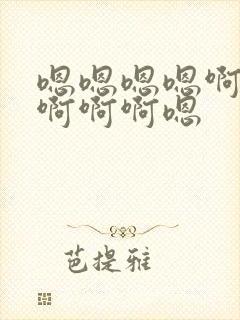 嗯嗯嗯嗯啊
啊啊啊嗯
芭提雅